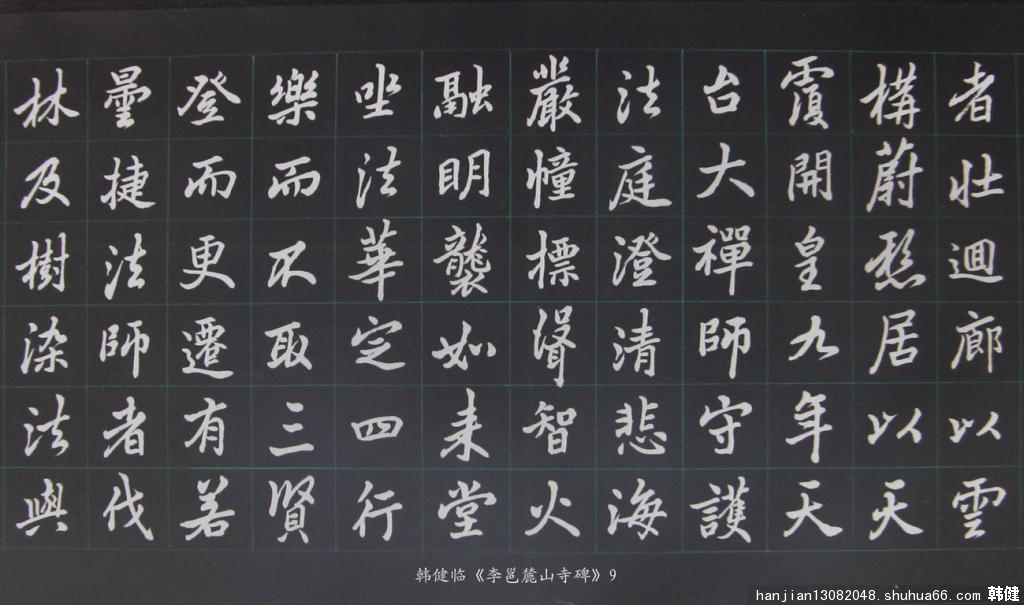 者壯迴廊以雲
構蔚居以天
覆開皇九年天
台大禪師守護
法庭澄清悲海
嚴幢標聳智火
融明襲如来堂
坐法華定四行
樂而不取三賢
登而更遷有若
曇捷法師者伐
林及樹染法與
韩健临《李邕麓山寺碑》9
hanjian13082048.shuhua66.com 韩健